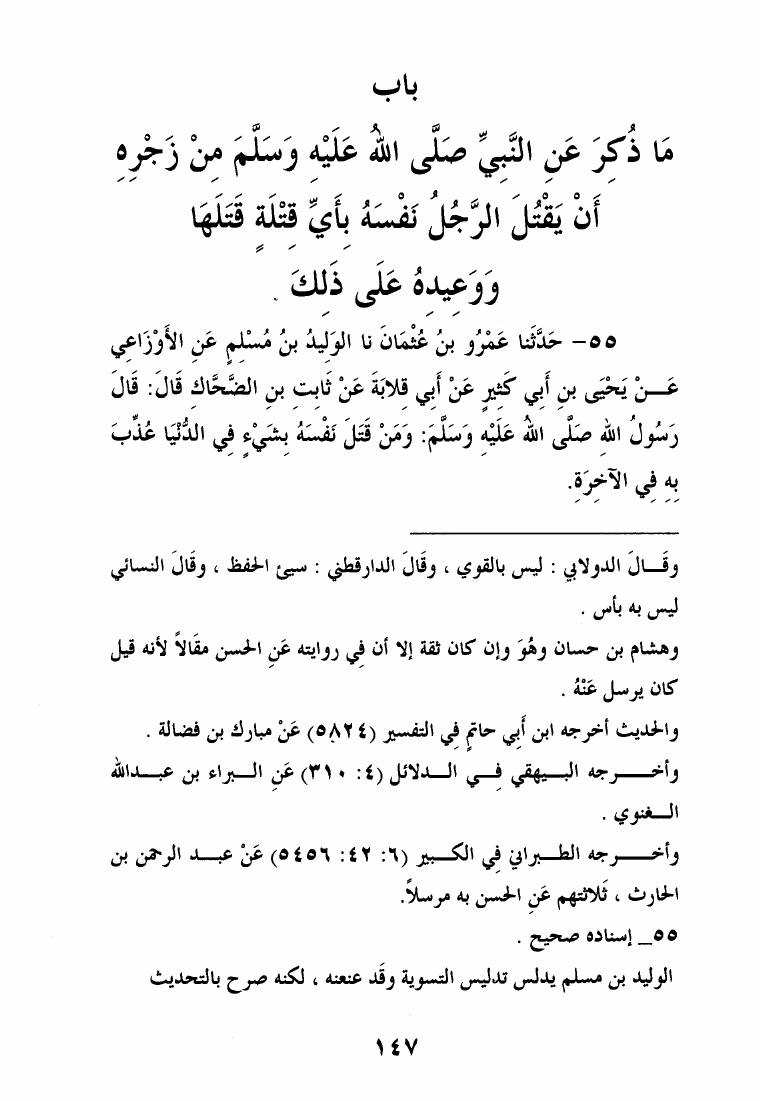 باب
مَا ذُكِرَ عَنِ النَّبِيِّ صَلَّى اللهُ عَلَيْهِ وَسَلَّمَ مِنْ زَجْرِهِ
أَنْ يَقْتُلَ الرَّجُلُ نَفْسَهُ بِأَيِّ قِتْلَةٍ قَتَلَهَا
وَوَعِيدِهُ عَلَى ذَلِكَ .
٥٥- حَدَّثَنا عَمْرُو بنُ عُثْمَانَ نا الوَلِيدُ بنُ مُسْلِمٍ عَنِ الأَوْزَاعِي
عَـــنْ يَحْيَى بنِ أَبي كَثيرٍ عَنْ أَبي قِلابَةَ عَنْ ثَابتِ بنِ الضَّحَّاكِ قَالَ: قَالَ
رَسُولُ اللهِ صَلَّى اللهُ عَلَيْهِ وَسَلَّمَ: وَمَنْ قَتَلَ نَفْسَهُ بِشَيْءٍ فِي الدُّنْيَا عُذِّبَ
بِهِ فِي الآخِرَةِ.
وقَــالَ الدولابي : ليس بالقوي ، وقَالَ الدارقطني : سيئ الحفظ ، وقَالَ النسائي
ليس به بأس .
وهشام بن حسان وهُوَ وإن كان ثقة إلا أن فِي روايته عَنِ الحسن مقَالاً لأنه قيل
كان يرسل عَنْهُ .
والحديث أخرجه ابن أَبي حاتمٍ فِي التفسير (٥٨٢٤) عَنْ مبارك بن فضالة .
وأخـــــرجه البـــيهقي فِـــي الـــدلائل (٤: ٣١٠) عَنِ الـــبراء بن عبـــدالله
الـــغنوي .
وأخـــــرجه الطـــبراني فِي الكـــبير (٦: ٤٢: ٥٤٥٦) عَنْ عبـــد الرحمن بن
الحارث ، ثَلاثتهم عَنِ الحسن به مرسلاً.
٥٥_ إسناده صحيح .
الوليد بن مسلم يدلس تدليس التسوية وقَد عنعنه ، لكنه صرح بالتحديث
١٤٧